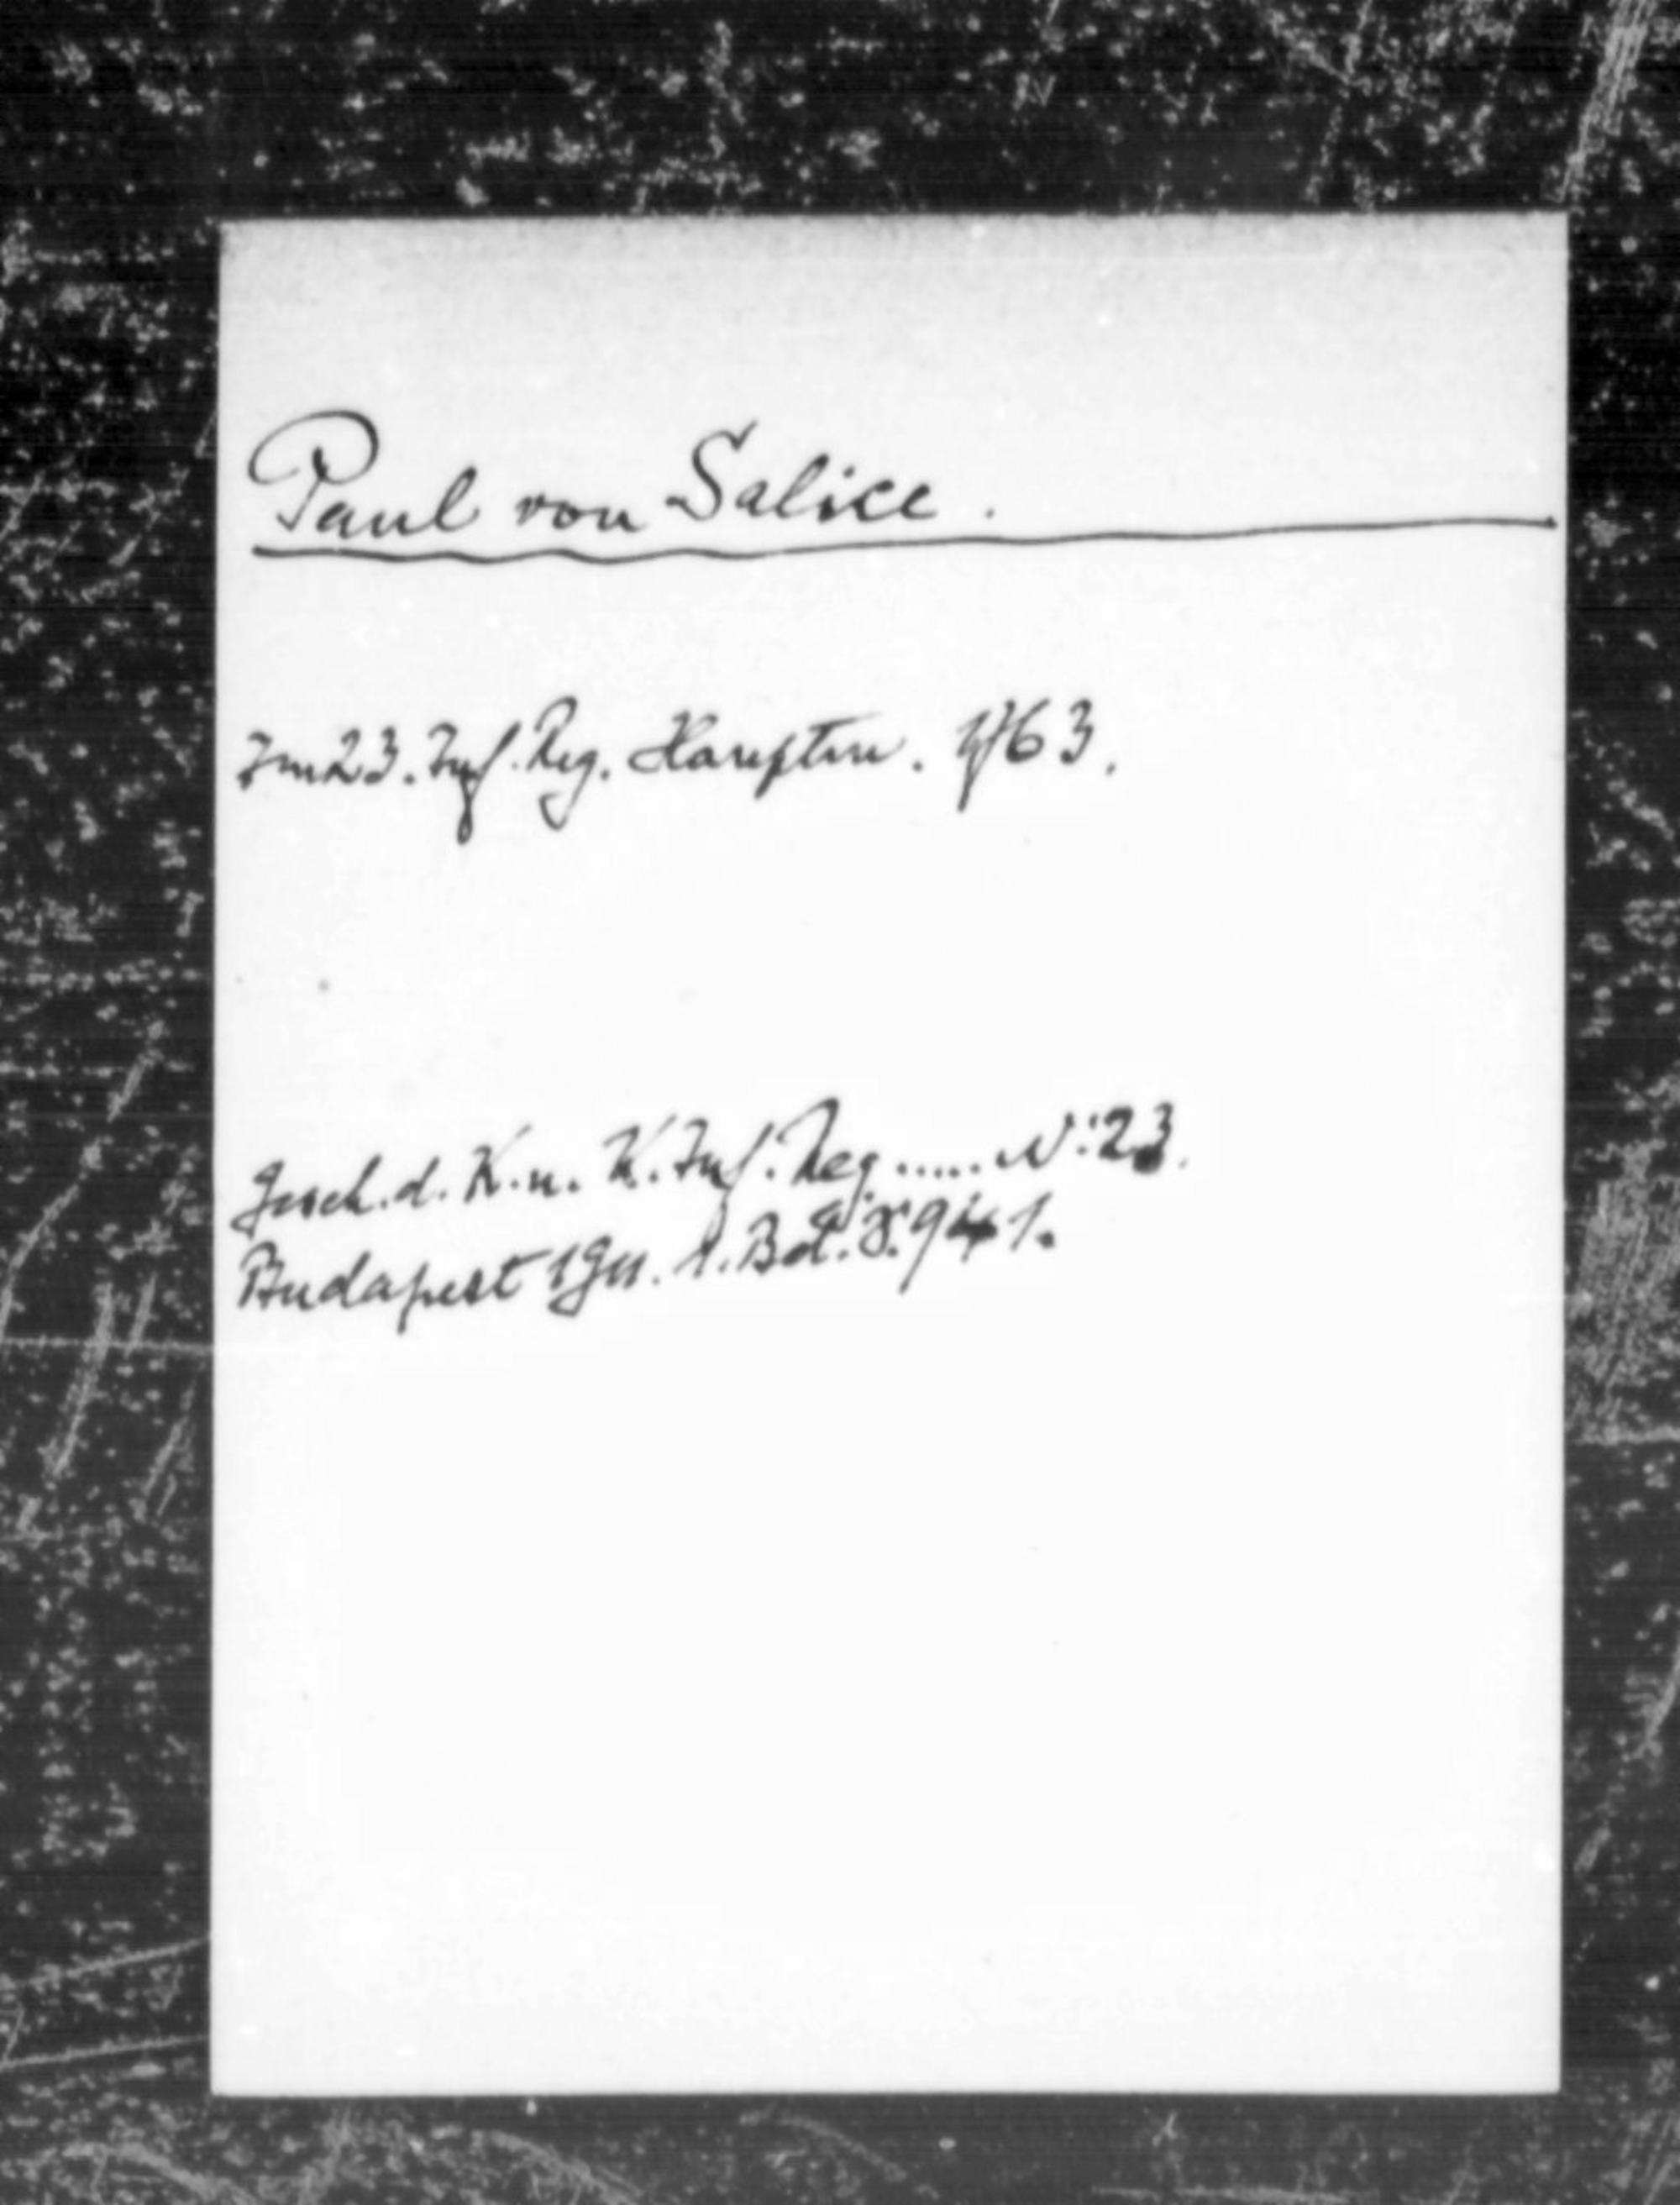 Paul von Salice.
Im 23. Inf. Reg. Hauptm. 1763.
Gesch. d. K. u. K. Inf. Reg ..... N: 23.
Budapest 1911. 1. Bd. S. 941.